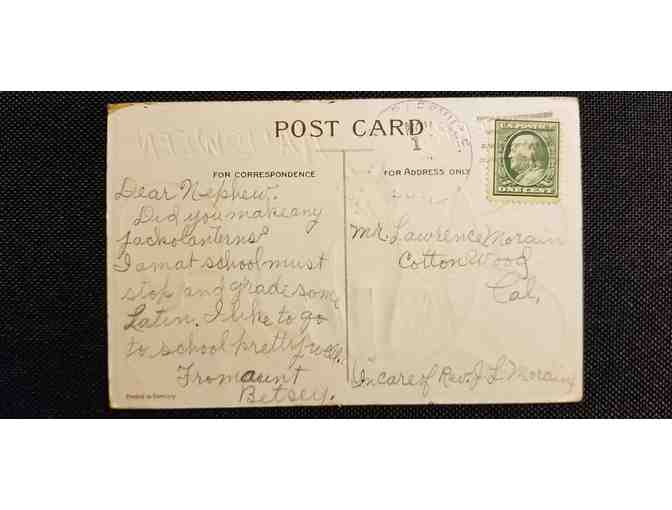 POST CARD
FOR CORRESPONDENCE
FOR ADDRESS ONLY
1
U.S. POSTAGE
ONE CENT
Dear Nephew.
Did you make any
Jackolanterns?
I am at school must
stop and grade some
Latin. I like to go
to school pretty well.
From aunt
Betsey.
Printed in Germany
Mr. Lawrence Morain
Cotton Wood
Cal,
In care of Rev. J L Morain